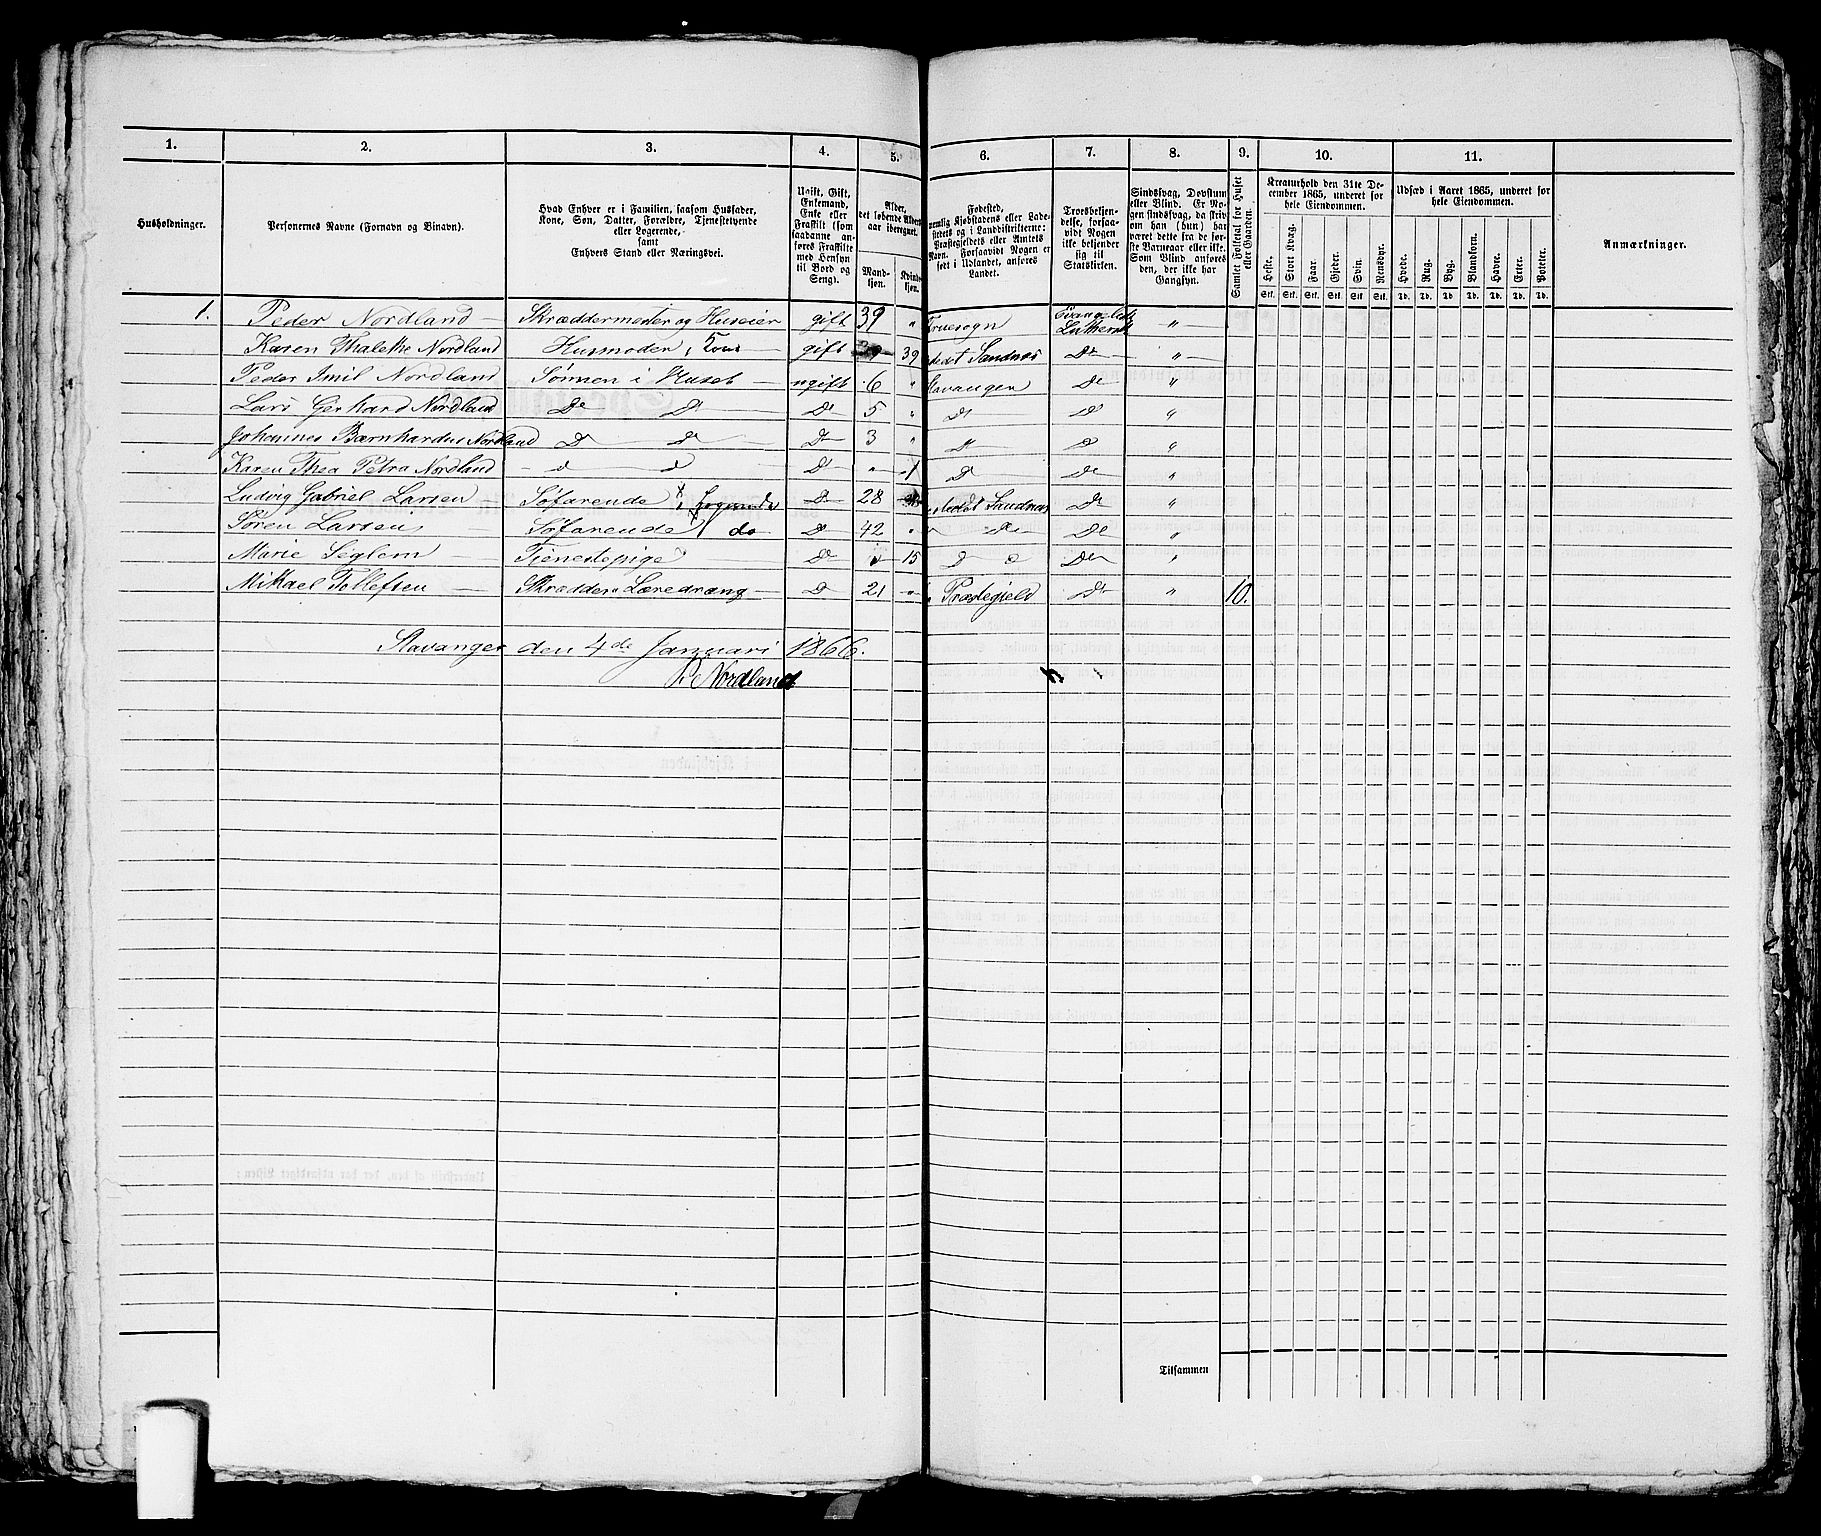 1. 2. 3. 4. 5. 6. 7. 8. 9. 10. 11.
Husholdninger.
Personernes Navne (Fornavn og Binavn).
Hvad Enhver er i Familien, saasom Husfader,
Kone, Søn, Datter, Forældre, Tjenestetyende
eller Logerende,
samt
Enhvers Stand eller Næringsvei.
Ugift, Gift,
Enkemand,
Enke eller
Fraskilt (som
saadanne an-
føres Fraskilte
med Hensyn
til Bord og
Seng).
Alder,
det løbende Alders-
aar iberegnet.
Mand-
kjøn.
Kvinde-
kjøn.
Fødested,
nemlig Kjøbstadens eller Lade-
stedets og i Landdistrikterne:
Præstegjeldets eller Amtets
Navn. Forsaavidt Nogen er
født i Udlandet, anføres
Landet.
Troesbekjen-
delse, forsaa-
vidt Nogen
ikke bekjender
sig til
Statskirken.
Sindssvag, Døvstum
eller Blind. Er No-
gen sindssvag, da skriv
om han (hun) har
været dette fra de før-
ste Barneaar eller ikke.
Som Blind anføres
den, der ikke har
Gangsyn.
Samlet Folketal for Huset
eller Gaarden.
Kreaturhold den 31te De-
cember 1865, underet for
hele Eiendommen.
Heste. Stort Kvæg. Faar. Gjeder. Svin. Rensdyr.
Stk. Stk. Stk. Stk. Stk. Stk.
Udsæd i Aaret 1865, underet for
hele Eiendommen.
Hvede. Rug. Byg. Blandkorn. Havre. Erter. Poteter.
Td. Td. Td. Td. Td. Td. Td.
Anmærkninger.
1. Peder Nordland — Skræddermester og Huseier gift 39 " Evangelisk Luthersk "
Karen Thalethe Nordland Husmoder, Kone gift 39 Stedet Sandnæs Do "
Peder Imil Nordland Sønnen i Huset — ugift 6 " Stavanger Do "
Lars Gerhard Nordland Do Do Do 5 " Do Do "
Johannes Bærnhardus Nordland Do Do Do 3 " Do Do "
Karen Thea Petra Nordland Do Do Do " 1 Do Do "
Ludvig Gabriel Larsen — Søfarende Logerende Do 28 Stedet Sandnæs Do "
Søren Larsen Søfarende do Do 42 " Do Do "
Marie Seglem — Tjenestepige Do 15 Do Do Do "
Mikael Tollefsen — Skrædder Læredræng — Do 21 " Præstegjeld Do " 10.
Stavanger den 4de Januari 1866.
P. Nordland
Tilsammen